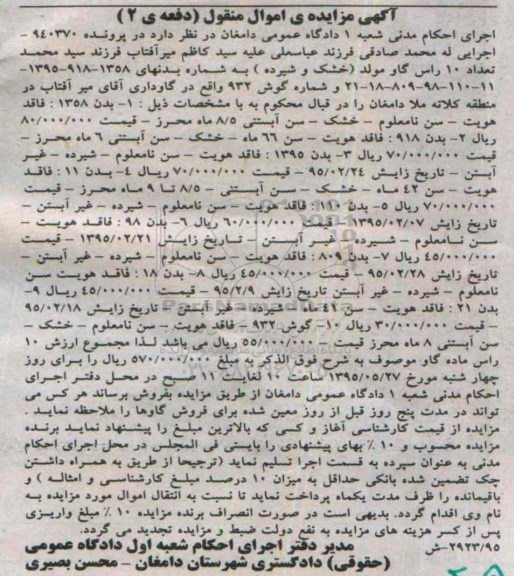 آگهی مزایده ی اموال منقول (دفعه ی ۲)
اجرای احکام مدنی شعبه ۱ دادگاه عمومی دامغان در نظر دارد در پرونده ۹۴۰۳۷۰ -
اجرایی له محمد صادقی فرزند عباسعلی علیه سید کاظم میرآفتاب فرزند سید محمد
تعداد ۱۰ راس گاو مولد (خشک و شیرده ) به شماره بدنهای ۱۳۵۸-۹۱۸-۱۳۹۵-
۱۱-۱۱۰-۹۸-۸۰۹-۱۸-۲۱ و شماره گوش ۹۳۲ واقع در گاوداری آقای میر آفتاب در
منطقه کلاته ملا دامغان را در قبال محکوم به با مشخصات ذیل : ۱- بدن ۱۳۵۸ : فاقد
هویت - سن نامعلوم - خشک - سن آبستنی ۸/۵ ماه محرز - قیمت ۸۰/۰۰۰/۰۰۰
ریال ۲- بدن ۹۱۸ : فاقد هویت - سن ۶۶ ماه - خشک - سن آبستنی ۶ ماه محرز -
قیمت ۷۰/۰۰۰/۰۰۰ ریال ۳- بدن ۱۳۹۵ : فاقد هویت - سن نامعلوم - شیرده - غیر
آبستن - تاریخ زایش ۹۵/۰۲/۲۴ - قیمت ۷۰/۰۰۰/۰۰۰ ریال ۴- بدن ۱۱ : فاقد
هویت - سن ۴۲ ماه - خشک - سن آبستنی - ۸/۵ تا ۹ ماه محرز - قیمت
۷۰/۰۰۰/۰۰۰ ریال ۵- بدن ۱۱۰ : فاقد هویت - سن نامعلوم - شیرده - غیر آبستن -
تاریخ زایش ۱۳۹۵/۰۲/۰۷ - قیمت ۶۰/۰۰۰/۰۰۰ ریال ۶- بدن ۹۸ : فاقد هویت -
سن نامعلوم - شیرده - غیر آبستن - تاریخ زایش ۱۳۹۵/۰۲/۲۱ - قیمت
۴۵/۰۰۰/۰۰۰ ریال ۷- بدن ۸۰۹ : فاقد هویت - سن نامعلوم - شیرده - غیر آبستن -
تاریخ زایش ۹۵/۰۲/۲۸ - قیمت ۴۵/۰۰۰/۰۰۰ ریال ۸- بدن ۱۸ : فاقد هویت سن
نامعلوم - شیرده - غیر آبستن تاریخ زایش ۹۵/۲/۹ - قیمت ۴۵/۰۰۰/۰۰۰ ریال ۹-
بدن ۲۱ : فاقد هویت - سن ۴۱ ماه - شیرده - غیر آبستن - تاریخ زایش ۹۵/۰۲/۱۸
- قیمت ۳۰/۰۰۰/۰۰۰ ریال ۱۰- گوش ۹۳۲ - فاقد هویت - سن نامعلوم - خشک -
سن آبستنی ۸ ماه محرز قیمت ۵۵/۰۰۰/۰۰۰ ریال می باشد لذا مجموع ارزش ۱۰
راس ماده گاو موصوف به شرح فوق الذکر به مبلغ ۵۷۰/۰۰۰/۰۰۰ ریال را برای روز
چهار شنبه مورخ ۱۳۹۵/۰۵/۲۷ ساعت ۱۰ لغایت ۱۱ صبح در محل دفتر اجرای
احکام مدنی شعبه ۱ دادگاه عمومی دامغان از طریق مزایده بفروش برساند هر کس می
تواند در مدت پنج روز قبل از روز معین شده برای فروش گاوها را ملاحظه نماید .
مزایده از قیمت کارشناسی آغاز و کسی که بالاترین مبلغ را پیشنهاد نماید برنده
مزایده محسوب و ۱۰ ٪ بهای پیشنهادی را بایستی فی المجلس در محل اجرای احکام
مدنی به عنوان سپرده به قسمت اجرا تسلیم نماید (ترجیحا از طریق به همراه داشتن
چک تضمین شده بانکی حداقل به میزان ۱۰ درصد مبلغ کارشناسی و امثاله ) و
باقیمانده را ظرف مدت یکماه پرداخت نماید تا نسبت به انتقال اموال مورد مزایده به
نام وی اقدام گردد. بدیهی است در صورت انصراف برنده مزایده ۱۰ ٪ مبلغ واریزی
پس از کسر هزینه های مزایده به نفع دولت ضبط و مزایده تجدید می گردد.
۲۹۲۳/۹۵-ش
مدیر دفتر اجرای احکام شعبه اول دادگاه عمومی
(حقوقی) دادگستری شهرستان دامغان - محسن بصیری